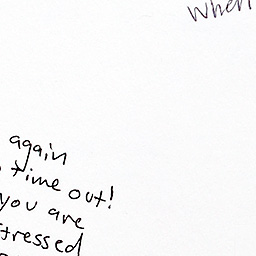 when
again
time out!
you are
stressed